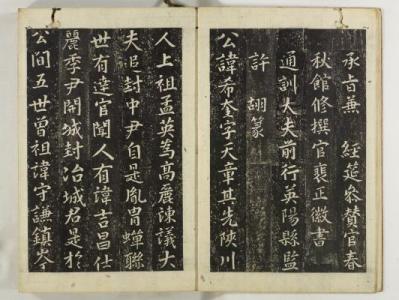 承旨兼　經筵參贊官春
秋館修撰官裴正徽書
通訓大夫前行英陽縣監
許翃篆
公諱希奎字天章其先陜川
人上祖孟英爲高麗諫議大
夫追封中尹自是胤冑蟬聯
世有達官聞人有諱吉昌仕
麗季尹開城封冶城君是於
公間五世曾祖諱守謙鎮岑